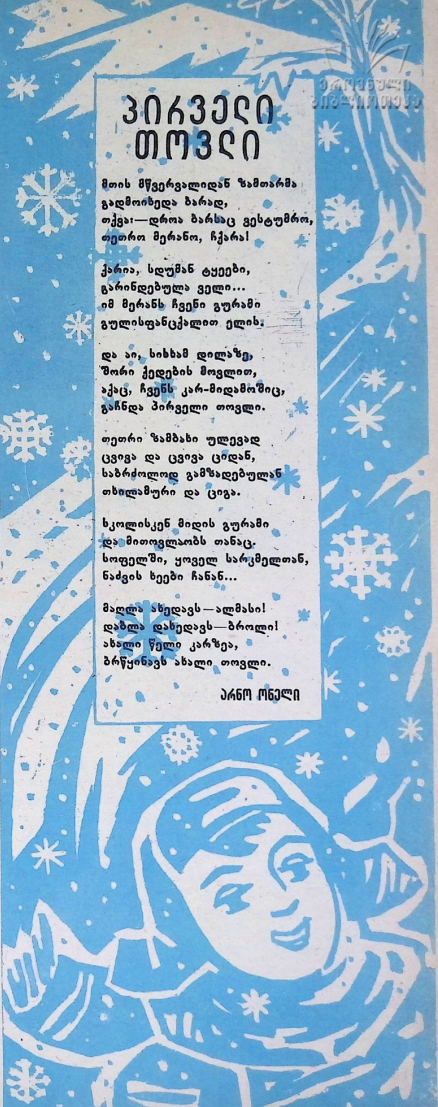 პირველი
თოვლი
მთის მწვერვალიდან ზამთარმა
გადმოიხედა ბარად,
თქვა:—დროა ბარსაც ვესტუმრო,
თეთრო მერანო, ჩქარა!
ქარია, სდუმან ტყეები,
გარინდებულა ველი...
იმ მერანს ჩვენი გურამი
გულისფანცქალით ელის.
და აი, სისხამ დილაზე,
შორი ქედების მოვლით,
აქაც, ჩვენს კარ-მიდამოშიც,
გაჩნდა პირველი თოვლი.
თეთრი ზამბახი ულევად
ცვივა და ცვივა ციდან,
საბრძოლოდ გამზადებულან
თხილამური და ციგა.
სკოლისკენ მიდის გურამი
და მითოვლაობს თანაც.
სოფელში, ყოველ სარკმელთან,
ნაძვის ხეები ჩანან...
მაღლა ახედავს—ალმასი!
დაბლა დახედავს—ბროლი!
ახალი წელი კარზეა,
ბრწყინავს ახალი თოვლი.
არნო ონელი